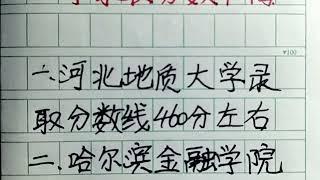 一.河北地质大学录
取分数线460分左右
二.哈尔滨金融学院